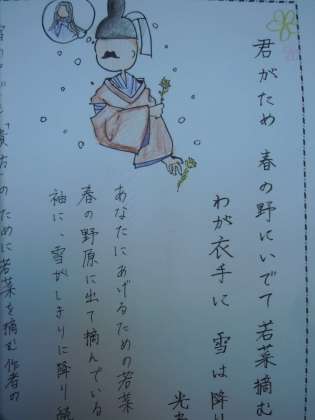 君がため 春の野にいでて 若菜摘む
わが衣手に 雪は降り
光孝
あなたにあげるための若菜
春の野原に出て摘んでいる
袖に、雪がしきりに降り続
ために若菜を摘む作者の